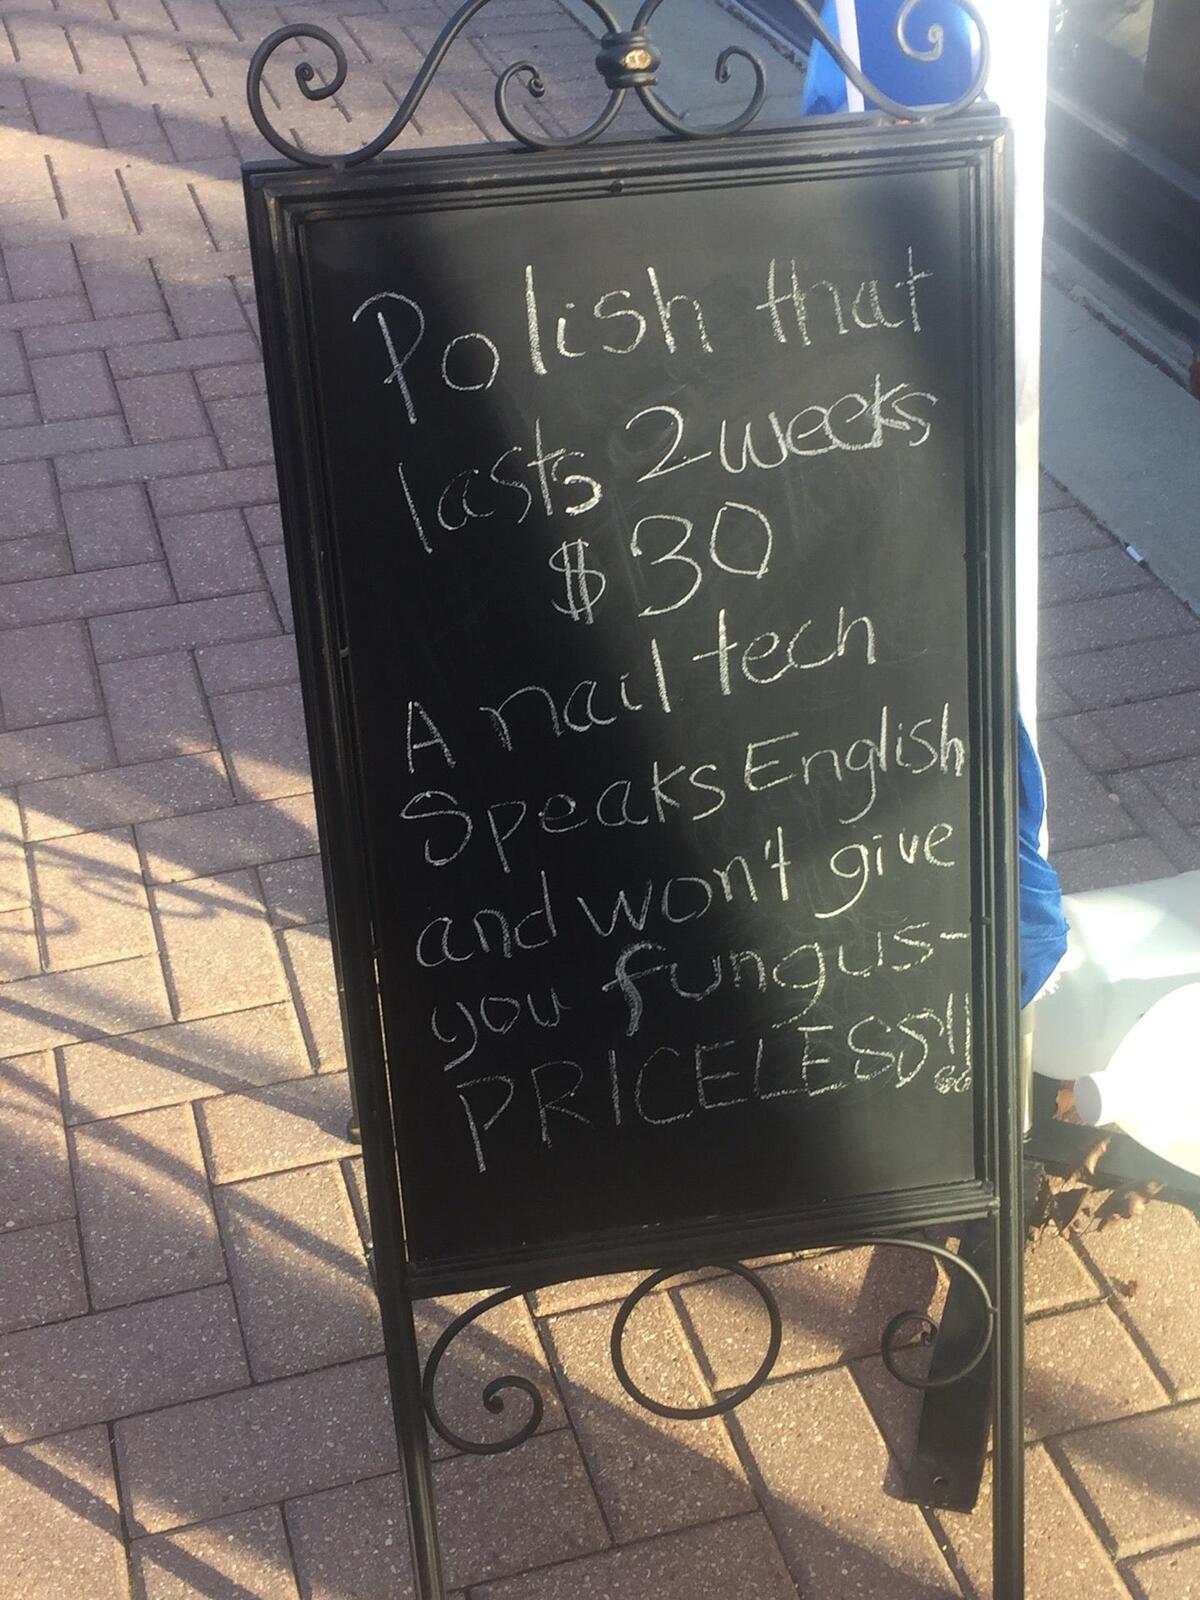 Polish that
lasts 2 weeks
$30
A nail tech
Speaks English
and won't give
you fungus-
PRICELESS!!